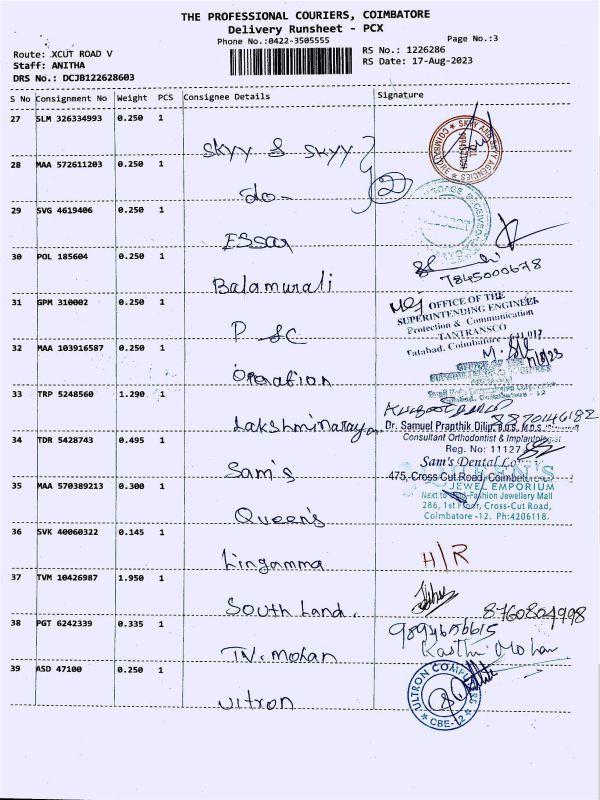 THE PROFESSIONAL COURIERS, COIMBATORE
Delivery Runsheet - PCX
Phone No.:0422-3505555
Page No.:3
Route: XCUT ROAD V
RS No.: 1226286
Staff: ANITHA
RS Date: 17-Aug-2023
DRS No.: DCJB122628603
S No Consignment No Weight PCS Consignee Details Signature
27 SLM 326334993 0.250 1
Skyy & Skyy
SKYY AND SKYY AGENCIES ★ COIMBATORE
28 MAA 572611203 0.250 1
do-
2
29 SVG 4619406 0.250 1
Essar
30 POL 185604 0.250 1
Balamurali
7845000678
31 GPM 310002 0.250 1
P SC
OFFICE OF THE
SUPERINTENDING ENGINEER
Protection & Communication
TANTRANSCO
Tatabad, Coimbatore - 641 012
32 MAA 103916587 0.250 1
Operation
OFFICE OF THE
33 TRP 5248560 1.290 1
Lakshminarayan
34 TDR 5428743 0.495 1
Sam's
Dr. Samuel Prapthik Dilip, B.D.S, M.D.S,
Consultant Orthodontist & Implantologist
Reg. No: 11127
Sam's Dental
475, Cross Cut Road, Coimbatore
35 MAA 570389213 0.300 1
Queen's
QUEEN'S
JEWEL EMPORIUM
Next to Fashion Jewellery Mall
286, 1st Floor, Cross-Cut Road,
Coimbatore -12. Ph:4206118.
36 SVK 40060322 0.145 1
Lingamma
H/R
37 TVM 10426987 1.950 1
South Land.
8760804998
38 PGT 6242339 0.335 1
T.V. Mohan
Karthi Mohan
39 ASD 47100 0.250 1
ultron
CBE-12